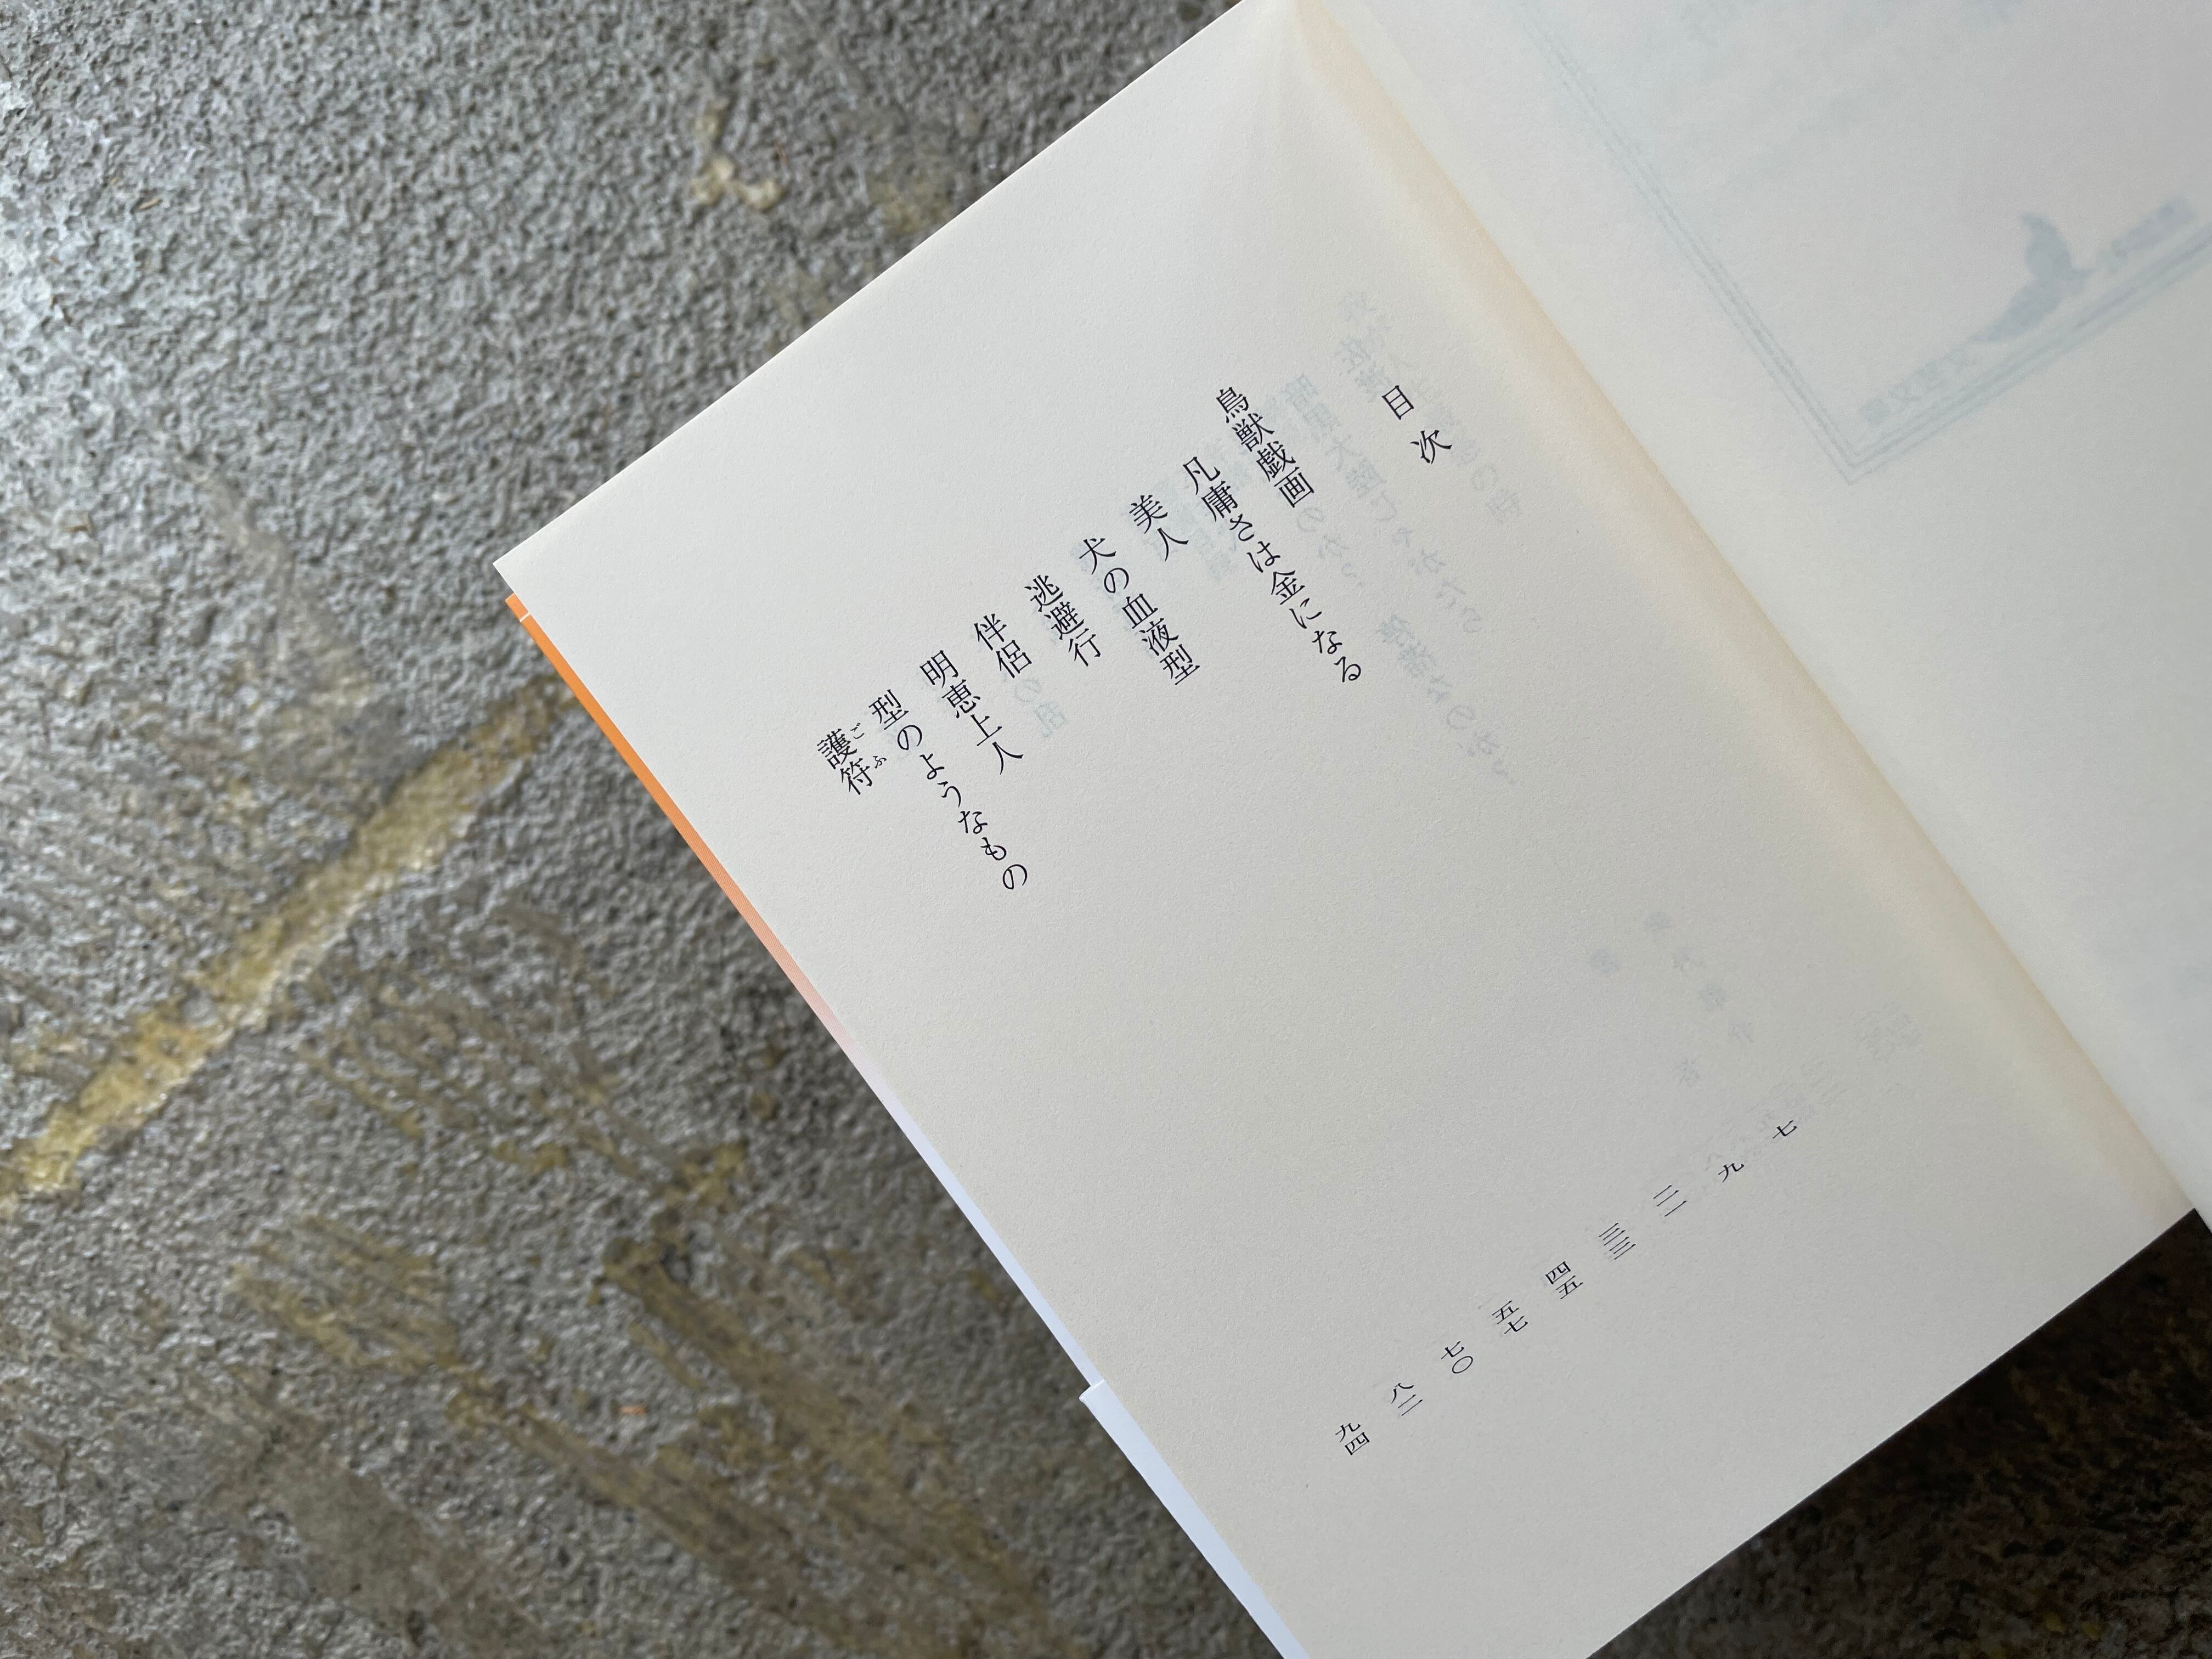 目次
鳥獣戯画 七
凡庸さは金になる 九
美人 二一
犬の血液型 三三
逃避行 四五
伴侶 五七
明恵上人 七〇
型のようなもの 八二
護符 九四
ごふ